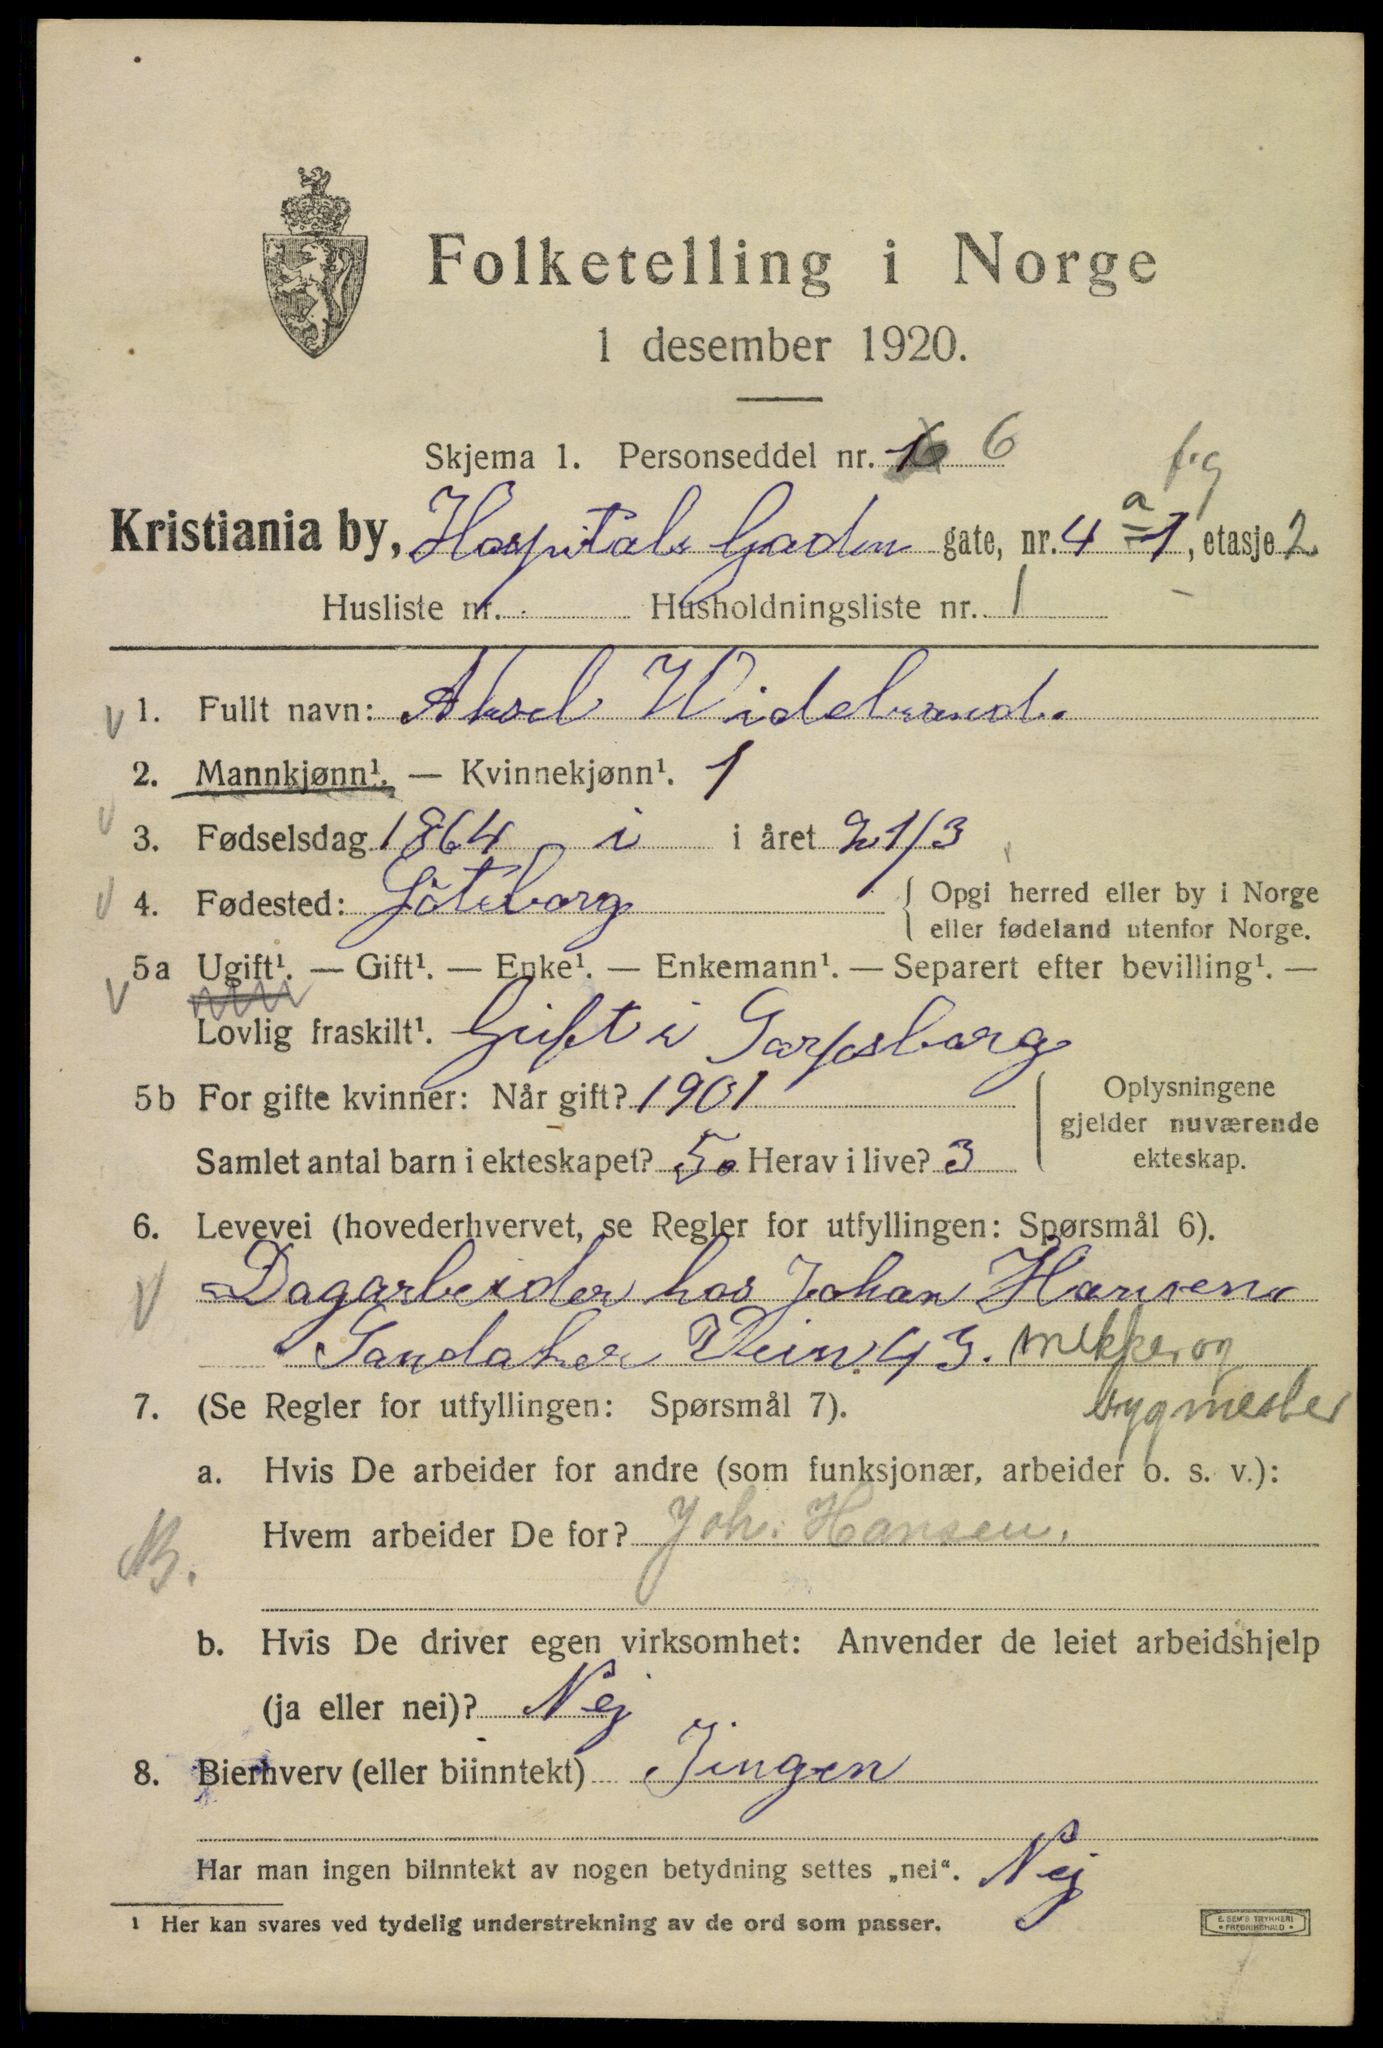 Folketelling i Norge
1 desember 1920.
Skjema 1. Personseddel nr. 6
f.g
Kristiania by, Hospitals Gaden gate, nr. 4 a = 1, etasje 2
Husliste nr. Husholdningsliste nr. 1 -
V 1. Fullt navn: Aksel Widebrand.
2. Mannkjønn¹. — Kvinnekjønn¹. 1
V 3. Fødselsdag 1864 i i året 21/3
V 4. Fødested: Göteborg { Opgi herred eller by i Norge
eller fødeland utenfor Norge.
V 5a Ugift¹. — Gift¹. — Enke¹. — Enkemann¹. — Separert efter bevilling¹. —
Lovlig fraskilt¹. Gift i Sarpsborg
5b For gifte kvinner: Når gift? 1901
Samlet antal barn i ekteskapet? 5. Herav i live? 3
Oplysningene
gjelder nuværende
ekteskap.
6. Levevei (hovederhvervet, se Regler for utfyllingen: Spørsmål 6).
V Dagarbeider hos Johan Hansen
Sandaker Vein 43. mekker og
bygmester
7. (Se Regler for utfyllingen: Spørsmål 7).
a. Hvis De arbeider for andre (som funksjonær, arbeider o. s. v.):
Hvem arbeider De for? Joh. Hansen.
b. Hvis De driver egen virksomhet: Anvender de leiet arbeidshjelp
(ja eller nei)? Nej
8. Bierhverv (eller biinntekt) Jingen
Har man ingen biinntekt av nogen betydning settes „nei“. Nej
1 Her kan svares ved tydelig understrekning av de ord som passer.
E. SEM'S TRYKKERI
• FREDRIKSHALD •